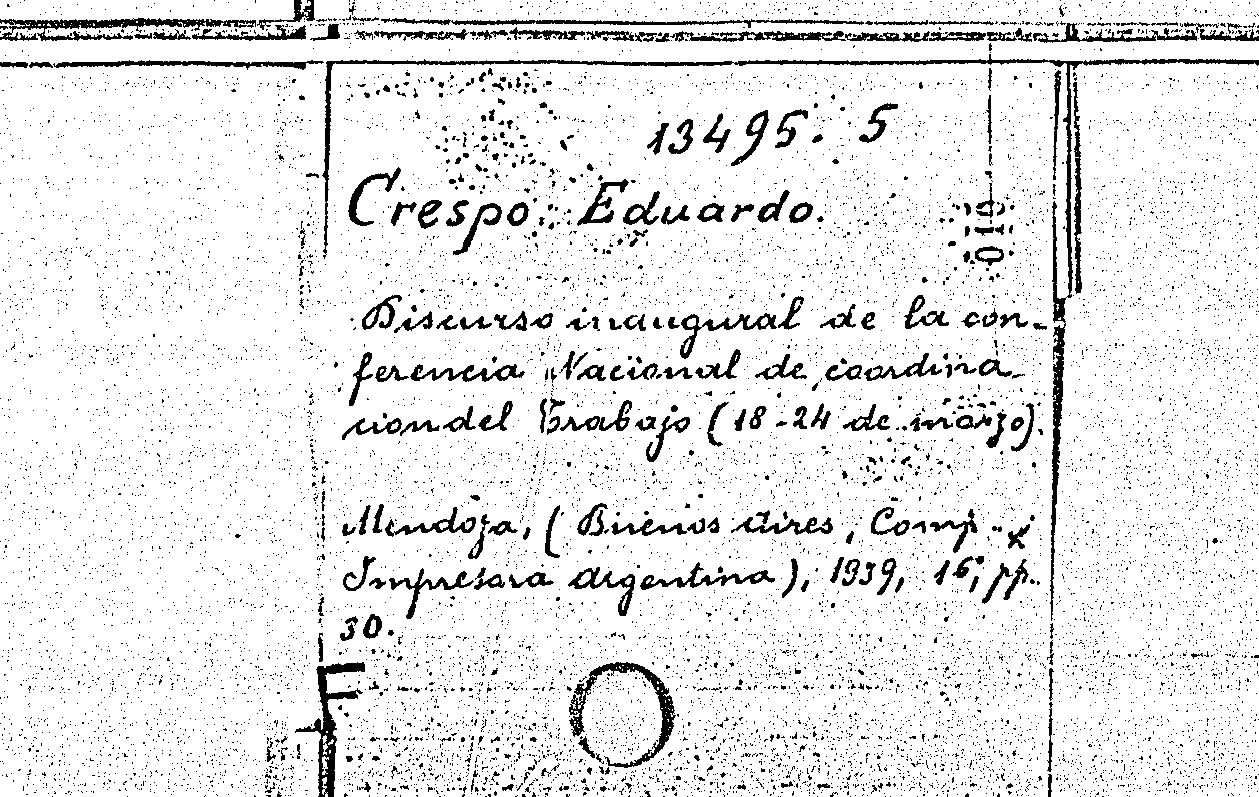 13495. 5
Crespo Eduardo.
010
Discurso inaugural de la con-
ferencia Nacional de coordina-
cion del Trabajo (18-24 de marzo).
Mendoza, (Buenos Aires, Comp.
Impresora Argentina), 1939, 16°, pp.
30.